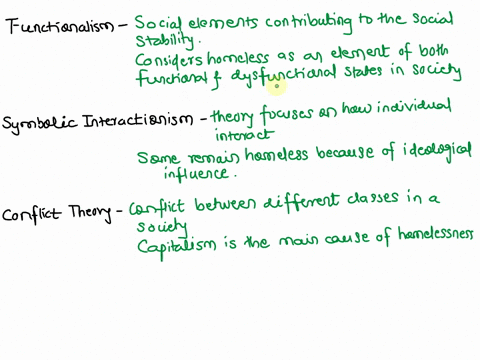 Functionalism - Social elements contributing to the social
stability.
Considers homeless as an element of both
functional & dysfunctional states in society
Symbolic Interactionism - theory focuses on how individual
interact
Some remain homeless because of ideological
influence.
Conflict Theory - Conflict between different classes in a
society
Capitalism is the main cause of homelessness